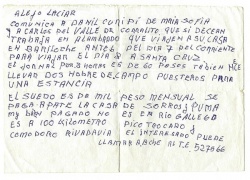 Alejo Laciar
comunica a Danil Cuni Pi de María Sofia
y a Carlos del Valle de Corralito que si decean
trabaja en alambado que viajen a su casa
en Bariloche antes del día 7 del corriente
para viajar el día 8 a Santa Cruz
el jornal por 8 horas es de 60 peses
llevar dos hobre de campo puesteros para
una estancia
El sueldo es de mil peso mensual se
paga aparte la casa de sorros y puma
muy bien pagado no es en Río Gallego
es a 100 kilometro Pico Truncado
Comodoro Rivadavia el interesado puede
llamar a Boche al T.E. 527066